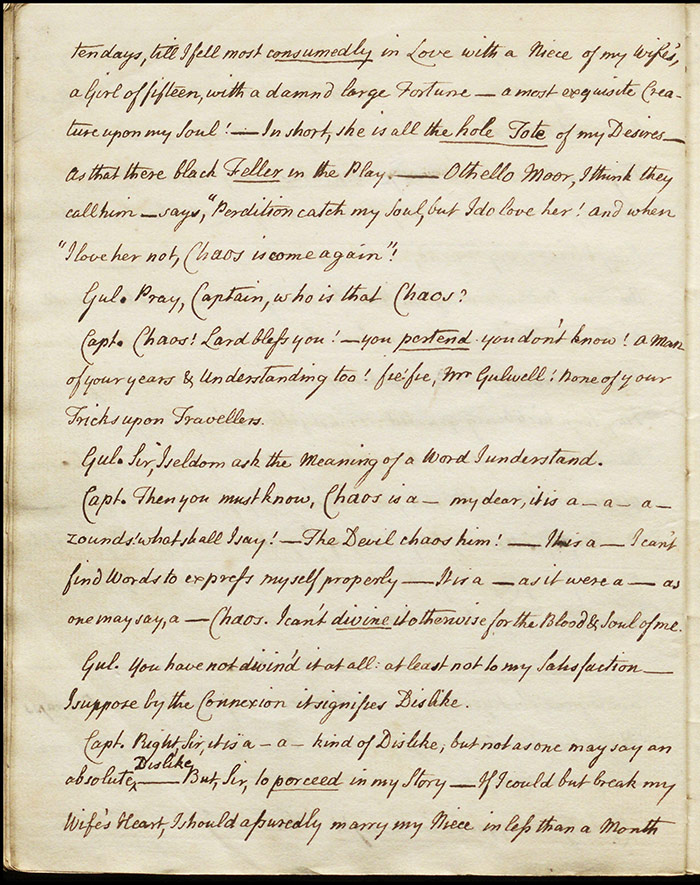 tendays, till I fell most consumedly in Love with a Niece of my Wife's,
a Girl of fifteen, with a damnd large Fortune — a most exquisite Crea-
ture upon my Soul! — In short, she is all the hole Tote of my Desires —
As that there black Feller in the Play — Othello Moor, I think they
call him — says, "Perdition catch my Soul, but I do love her! and when
"I love her not, Chaos is come again"!
Gul. Pray, Captain, who is that Chaos?
Capt. Chaos! Lard bless you! — you portend you don't know! A Man
of your years & Understanding too! fie-fie, Mr Gulwell! None of your
Tricks upon Travellers.
Gul. Sir, I seldom ask the Meaning of a Word I understand.
Capt. Then you must know, Chaos is a — my dear, it is a — a — a —
zounds! what shall I say! — The Devil chaos him! — It is a — I can't
find Words to express myself properly — It is a — as it were a — as
one may say, a — Chaos. I can't divine it otherwise for the Blood & Soul of me.
Gul. You have not divin'd it at all: at least not to my Satisfaction —
I suppose by the Connexion it signifies Dislike.
Capt. Right, Sir, it is a — a — kind of Dislike, but not as one may say an
absolute Dislike — But, Sir, to porceed in my Story — If I could but break my
Wife's Heart, I should assuredly marry my Niece in less than a Month